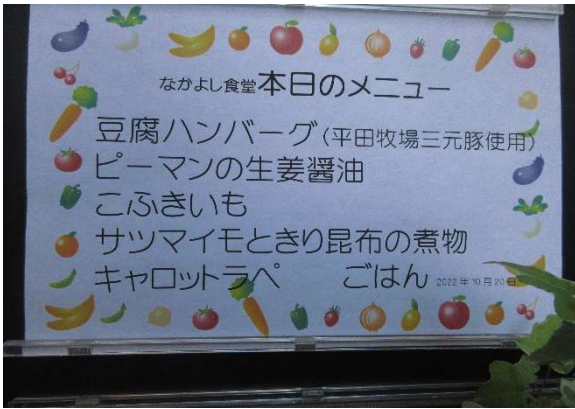 なかよし食堂本日のメニュー
豆腐ハンバーグ(平田牧場三元豚使用)
ピーマンの生姜醤油
こふきいも
サツマイモときり昆布の煮物
キャロットラペ ごはん 2022年10月20日